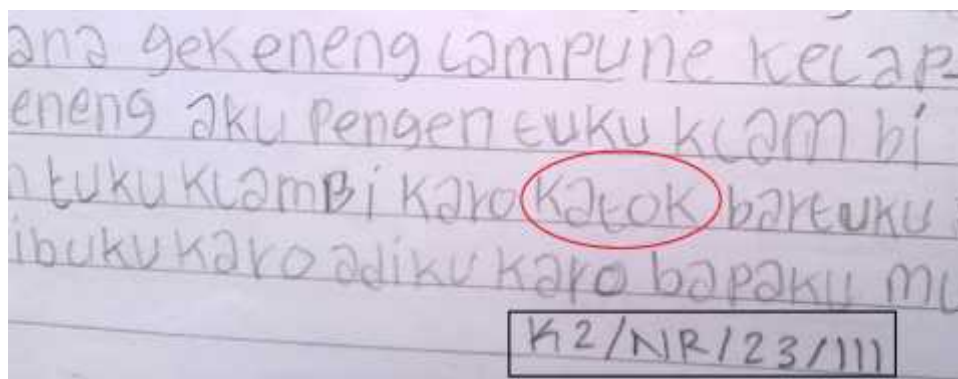 ana gekeneng lampune kelap-
eneng aku pengen tuku klam bi
tuku klamBi karo katok bartuku
ibuku karo adiku karo bapaku mu
K2/NR/23/111